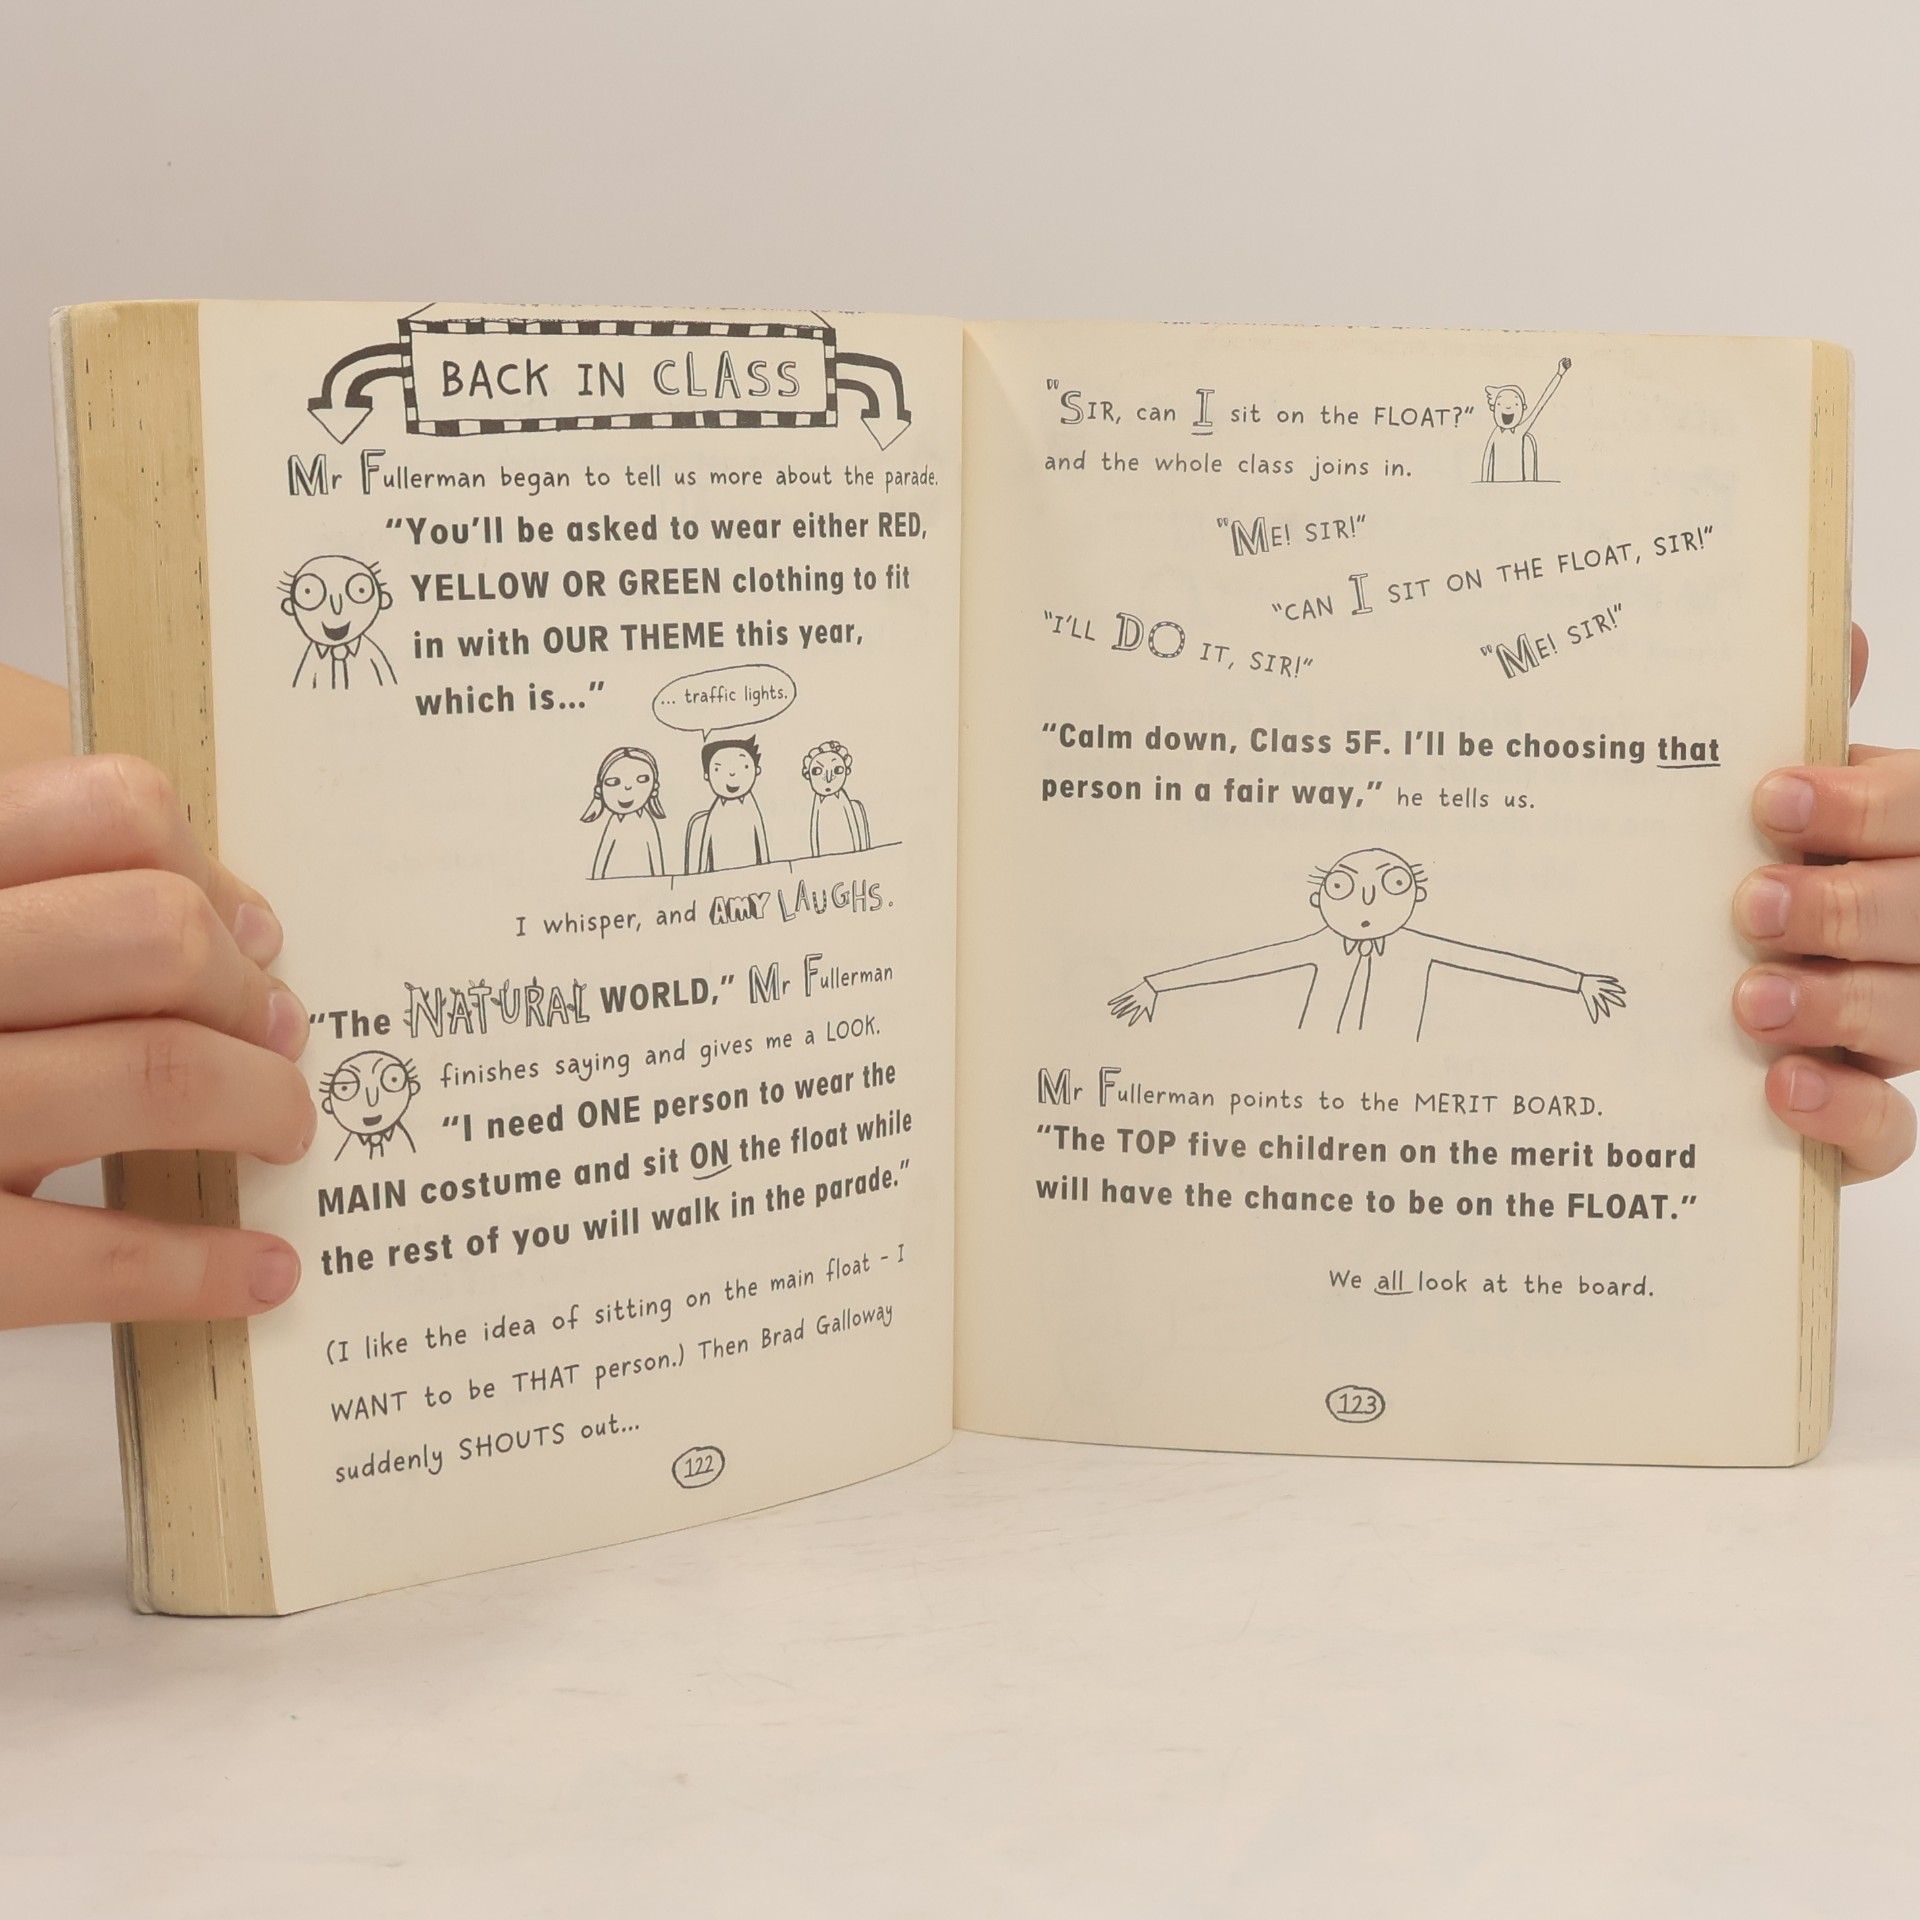 BACK IN CLASS
Mr Fullerman began to tell us more about the parade.
“You’ll be asked to wear either RED,
YELLOW OR GREEN clothing to fit
in with OUR THEME this year,
which is...”
... traffic lights.
I whisper, and AMY LAUGHS.
“The NATURAL WORLD,” Mr Fullerman
finishes saying and gives me a LOOK.
“I need ONE person to wear the
MAIN costume and sit ON the float while
the rest of you will walk in the parade.”
(I like the idea of sitting on the main float - I
WANT to be THAT person.) Then Brad Galloway
suddenly SHOUTS out...
122
“SIR, can I sit on the FLOAT?”
and the whole class joins in.
“ME! SIR!”
“CAN I SIT ON THE FLOAT, SIR!”
“I’LL DO IT, SIR!”
“ME! SIR!”
“Calm down, Class 5F. I’ll be choosing that
person in a fair way,” he tells us.
Mr Fullerman points to the MERIT BOARD.
“The TOP five children on the merit board
will have the chance to be on the FLOAT.”
We all look at the board.
123